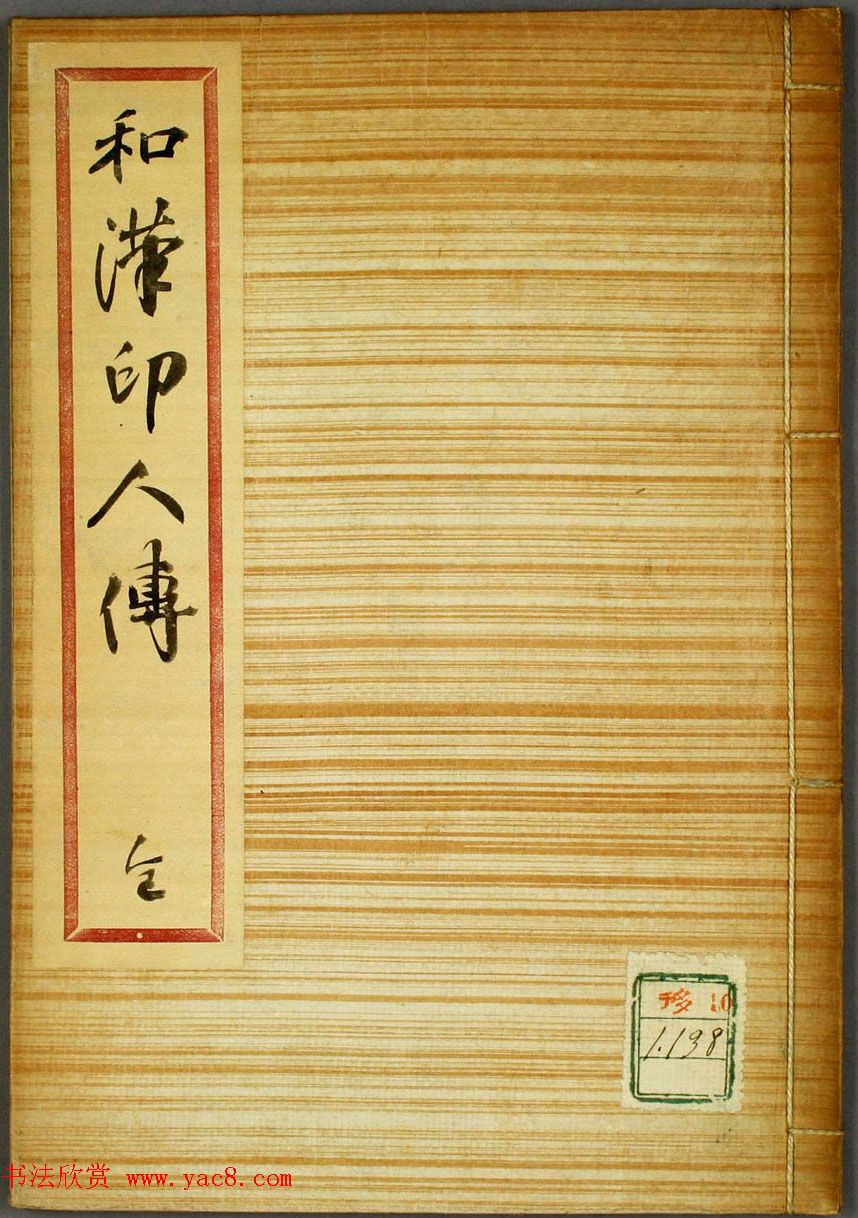 和漢印人傳
全
移 10
1.198
书法欣赏 www.yac8.com